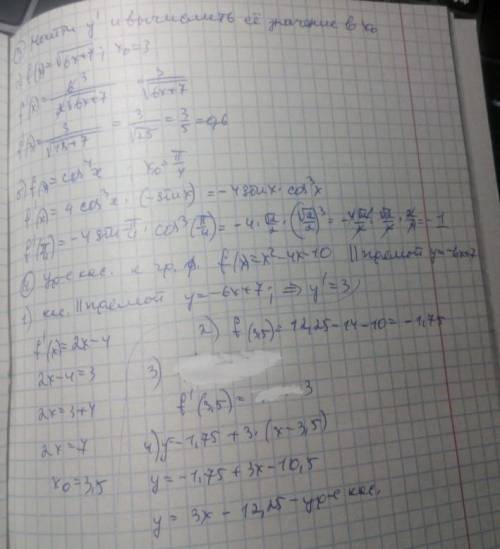 ⑤ Найти y' и вычислить её значение в x₀
а) f(x)=√(6x+7); x₀=3
f'(x)= 6̶ 3 / 2̶√(6x+7) = 3/√(6x+7)
f'(x)= 3/√(18+7) = 3/√25 = 3/5 = 0,6
б) f(x)=cos⁴x x₀=π/4
f'(x)= 4 cos³x · (-sin x) = -4 sin x · cos³x
f'(π/4)= -4 sin π/4 · cos³(π/4) = -4 · √2/2 · (√2/2)³ = -4√2/2 · √2/2 · 2/4 = -1
⑥ ур-е кас. к гр. ф. f(x)=x²-4x-10 || прямой y=-6x+7
1) кас. || прямой y=-6x+7; ⇒ y'=3
f'(x)=2x-4
2) f(3,5)=12,25-14-10=-1,75
2x-4=3
3)
f'(3,5)= 3
2x=3+4
2x=7
4) y=-1,75+3·(x-3,5)
x₀=3,5
y=-1,75+3x-10,5
y = 3x-12,25 - ур-е кас.